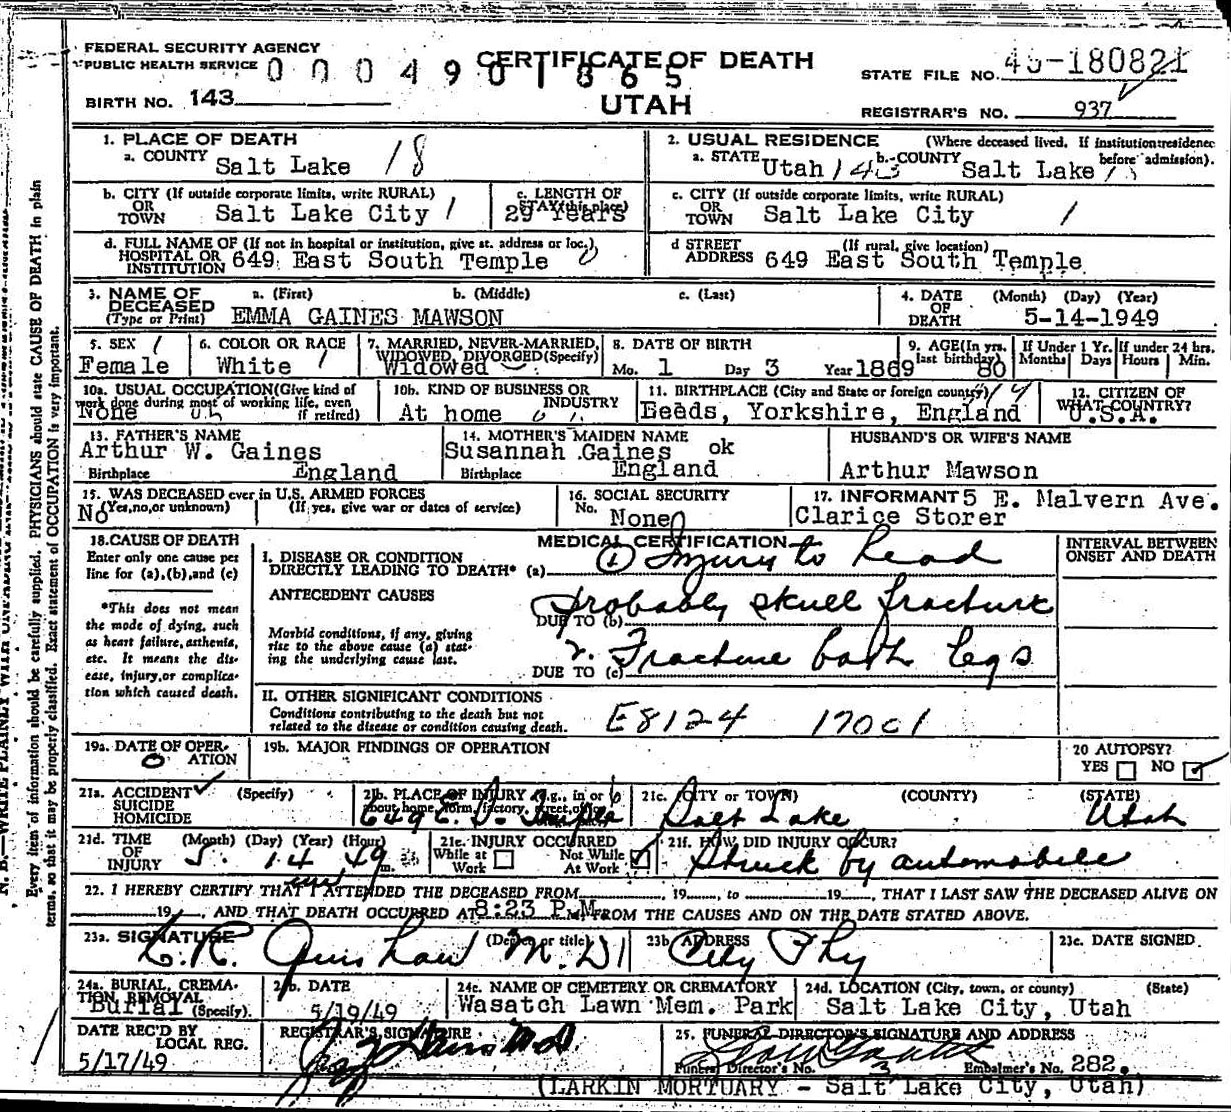 FEDERAL SECURITY AGENCY
PUBLIC HEALTH SERVICE
0004901865
BIRTH NO. 143
CERTIFICATE OF DEATH
UTAH
STATE FILE NO. 49-180821
REGISTRAR'S NO. 937
1. PLACE OF DEATH
a. COUNTY Salt Lake 18
2. USUAL RESIDENCE (Where deceased lived. If institution: residence before admission).
a. STATE Utah 143 b. COUNTY Salt Lake
b. CITY (If outside corporate limits, write RURAL) OR TOWN Salt Lake City 1
c. LENGTH OF STAY (this place) 29 Years
c. CITY (If outside corporate limits, write RURAL) OR TOWN Salt Lake City 1
d. FULL NAME OF (If not in hospital or institution, give st. address or loc.) HOSPITAL OR INSTITUTION 649 East South Temple 0
d STREET ADDRESS (If rural, give location) 649 East South Temple
3. NAME OF DECEASED (Type or Print) a. (First) b. (Middle) c. (Last)
EMMA GAINES MAWSON
4. DATE OF DEATH (Month) (Day) (Year)
5-14-1949
5. SEX 1 Female
6. COLOR OR RACE White 1
7. MARRIED, NEVER-MARRIED, WIDOWED, DIVORCED (Specify) Widowed
8. DATE OF BIRTH
Mo. 1 Day 3 Year 1869
9. AGE (In yrs. last birthday) 80
If Under 1 Yr. Months Days
If under 24 hrs. Hours Min.
10a. USUAL OCCUPATION (Give kind of work done during most of working life, even if retired) None
10b. KIND OF BUSINESS OR INDUSTRY At home
11. BIRTHPLACE (City and State or foreign county) 14 Leeds, Yorkshire, England
12. CITIZEN OF WHAT COUNTRY? U.S.A.
13. FATHER'S NAME
Arthur W. Gaines
Birthplace England
14. MOTHER'S MAIDEN NAME
Susannah Gaines ok
Birthplace England
HUSBAND'S OR WIFE'S NAME
Arthur Mawson
15. WAS DECEASED ever in U.S. ARMED FORCES
No (Yes, no, or unknown) (If yes, give war or dates of service)
16. SOCIAL SECURITY No. None
17. INFORMANT 5 E. Malvern Ave.
Clarice Storer
18. CAUSE OF DEATH
Enter only one cause per line for (a), (b), and (c)
*This does not mean the mode of dying, such as heart failure, asthenia, etc. It means the disease, injury, or complication which caused death.
MEDICAL CERTIFICATION
INTERVAL BETWEEN ONSET AND DEATH
I. DISEASE OR CONDITION DIRECTLY LEADING TO DEATH* (a) 1 Injury to head
ANTECEDENT CAUSES
Morbid conditions, if any, giving rise to the above cause (a) stating the underlying cause last.
DUE TO (b) probably skull fracture
DUE TO (c) 2. Fracture both legs
II. OTHER SIGNIFICANT CONDITIONS
Conditions contributing to the death but not related to the disease or condition causing death.
E8124 17001
19a. DATE OF OPERATION 0
19b. MAJOR FINDINGS OF OPERATION
20 AUTOPSY? YES NO ✓
21a. ACCIDENT ✓ SUICIDE HOMICIDE (Specify)
21b. PLACE OF INJURY (e.g., in or about home, farm, factory, street, office) 649 E. S. Temple
21c. (CITY or TOWN) (COUNTY) (STATE)
Salt Lake Utah
21d. TIME OF INJURY (Month) (Day) (Year) (Hour) m.
5. 14 49
21e. INJURY OCCURRED While at Work Not While At Work ✓
21f. HOW DID INJURY OCCUR?
Struck by automobile
22. I HEREBY CERTIFY THAT I ATTENDED THE DECEASED FROM 19, to 19, THAT I LAST SAW THE DECEASED ALIVE ON
19, AND THAT DEATH OCCURRED AT 8:23 P.M. FROM THE CAUSES AND ON THE DATE STATED ABOVE.
23a. SIGNATURE (Degree or title) M.D.
23b. ADDRESS City Phy
23c. DATE SIGNED
24a. BURIAL, CREMATION, REMOVAL (Specify) Burial
24b. DATE 5/19/49
24c. NAME OF CEMETERY OR CREMATORY
Wasatch Lawn Mem. Park
24d. LOCATION (City, town, or county) (State)
Salt Lake City, Utah
DATE REC'D BY LOCAL REG. 5/17/49
REGISTRAR'S SIGNATURE
25. FUNERAL DIRECTOR'S SIGNATURE AND ADDRESS
Funeral Director's No. 3 Embalmer's No. 282.
(LARKIN MORTUARY - Salt Lake City, Utah)
Every item of information should be carefully supplied. PHYSICIANS should state CAUSE OF DEATH in plain
terms, so that it may be properly classified. Exact statement of OCCUPATION is very important.